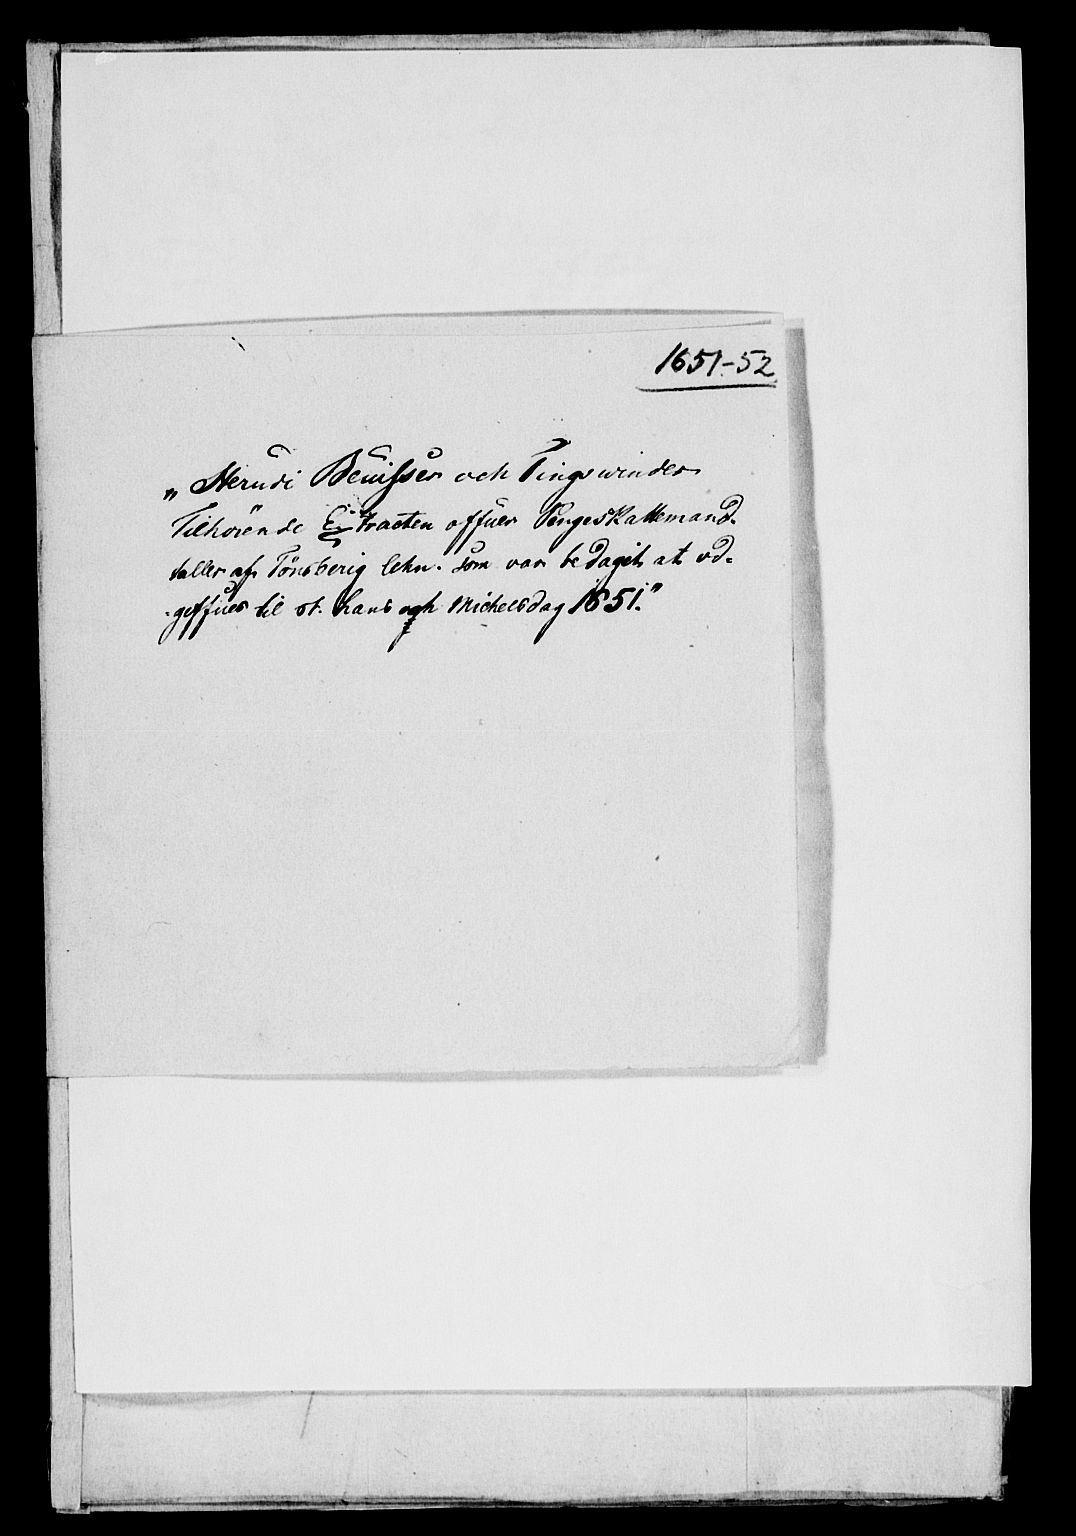 1651-52
„Herudi Beuisser och Tingswinder
Tilhörende Extracten offuer Pengeskattemand-
taller af Tönsberig lehn. som var bedaget at vd-
-geffues til st. Hans ogh Michelsdag 1651."